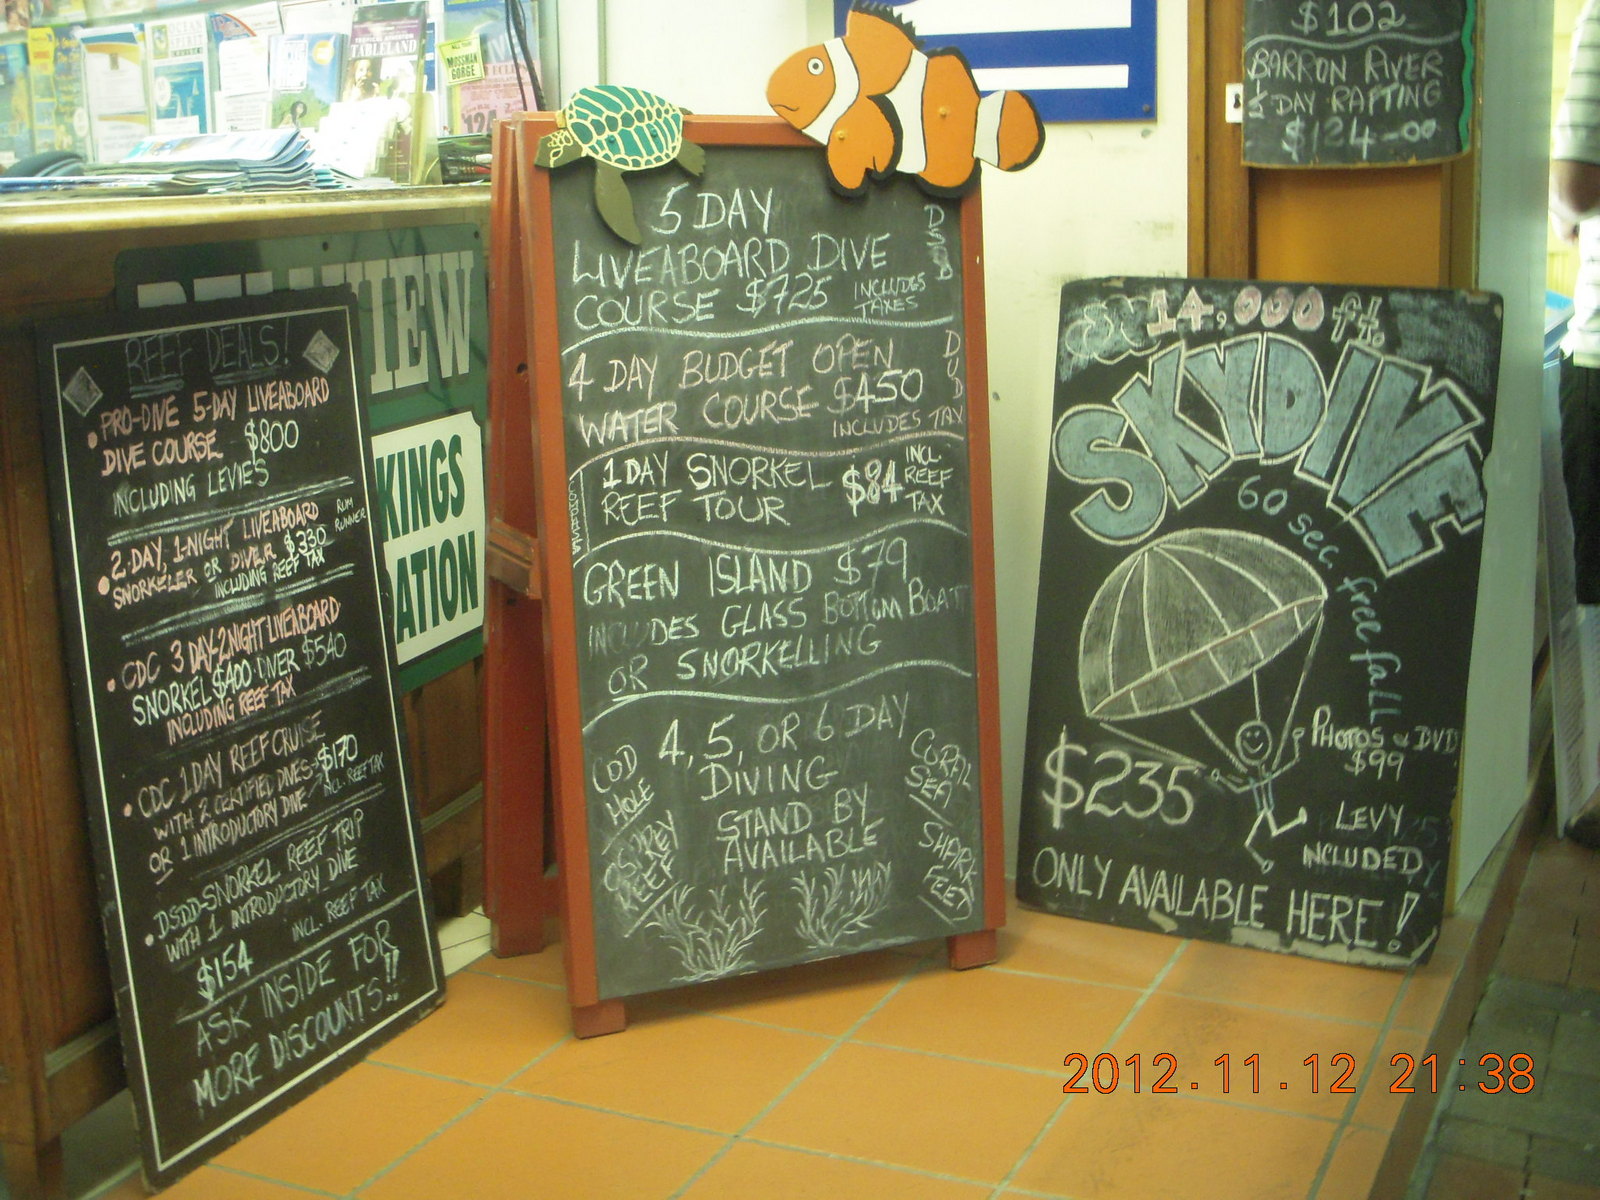 TABLELAND
MOSSMAN
GORGE
VIEW
KINGS
ATION
REEF DEALS!
PRO-DIVE 5-DAY LIVEABOARD
DIVE COURSE $800
INCLUDING LEVIES
2-DAY, 1-NIGHT LIVEABOARD
RUM
RUNNER
SNORKELER OR DIVER $330
INCLUDING REEF TAX
CDC 3 DAY-2NIGHT LIVEABOARD
SNORKEL $400 DIVER $540
INCLUDING REEF TAX
CDC 1DAY REEF CRUISE
WITH 2 CERTIFIED DIVES $170
OR 1 INTRODUCTORY DIVE INCL. REEF TAX
DSDD-SNORKEL REEF TRIP
WITH 1 INTRODUCTORY DIVE
$154 INCL. REEF TAX
ASK INSIDE FOR
MORE DISCOUNTS!!
5 DAY
LIVEABOARD DIVE
COURSE $725 INCLUDES
TAXES
4 DAY BUDGET OPEN
WATER COURSE $450
INCLUDES TAX
1 DAY SNORKEL
REEF TOUR $84 INCL.
REEF
TAX
GREEN ISLAND $79
INCLUDES GLASS BOTTOM BOAT
OR SNORKELLING
4, 5, OR 6 DAY
DIVING
STAND BY
AVAILABLE
COD
HOLE
OSPREY
REEF
CORAL
SEA
SHARK
FEED
$102
BARRON RIVER
½ DAY RAFTING
$124-00
14,000 ft.
SKYDIVE
60 sec free fall
$235
PHOTOS & DVD
$99
LEVY
INCLUDED
ONLY AVAILABLE HERE!
2012.11.12 21:38